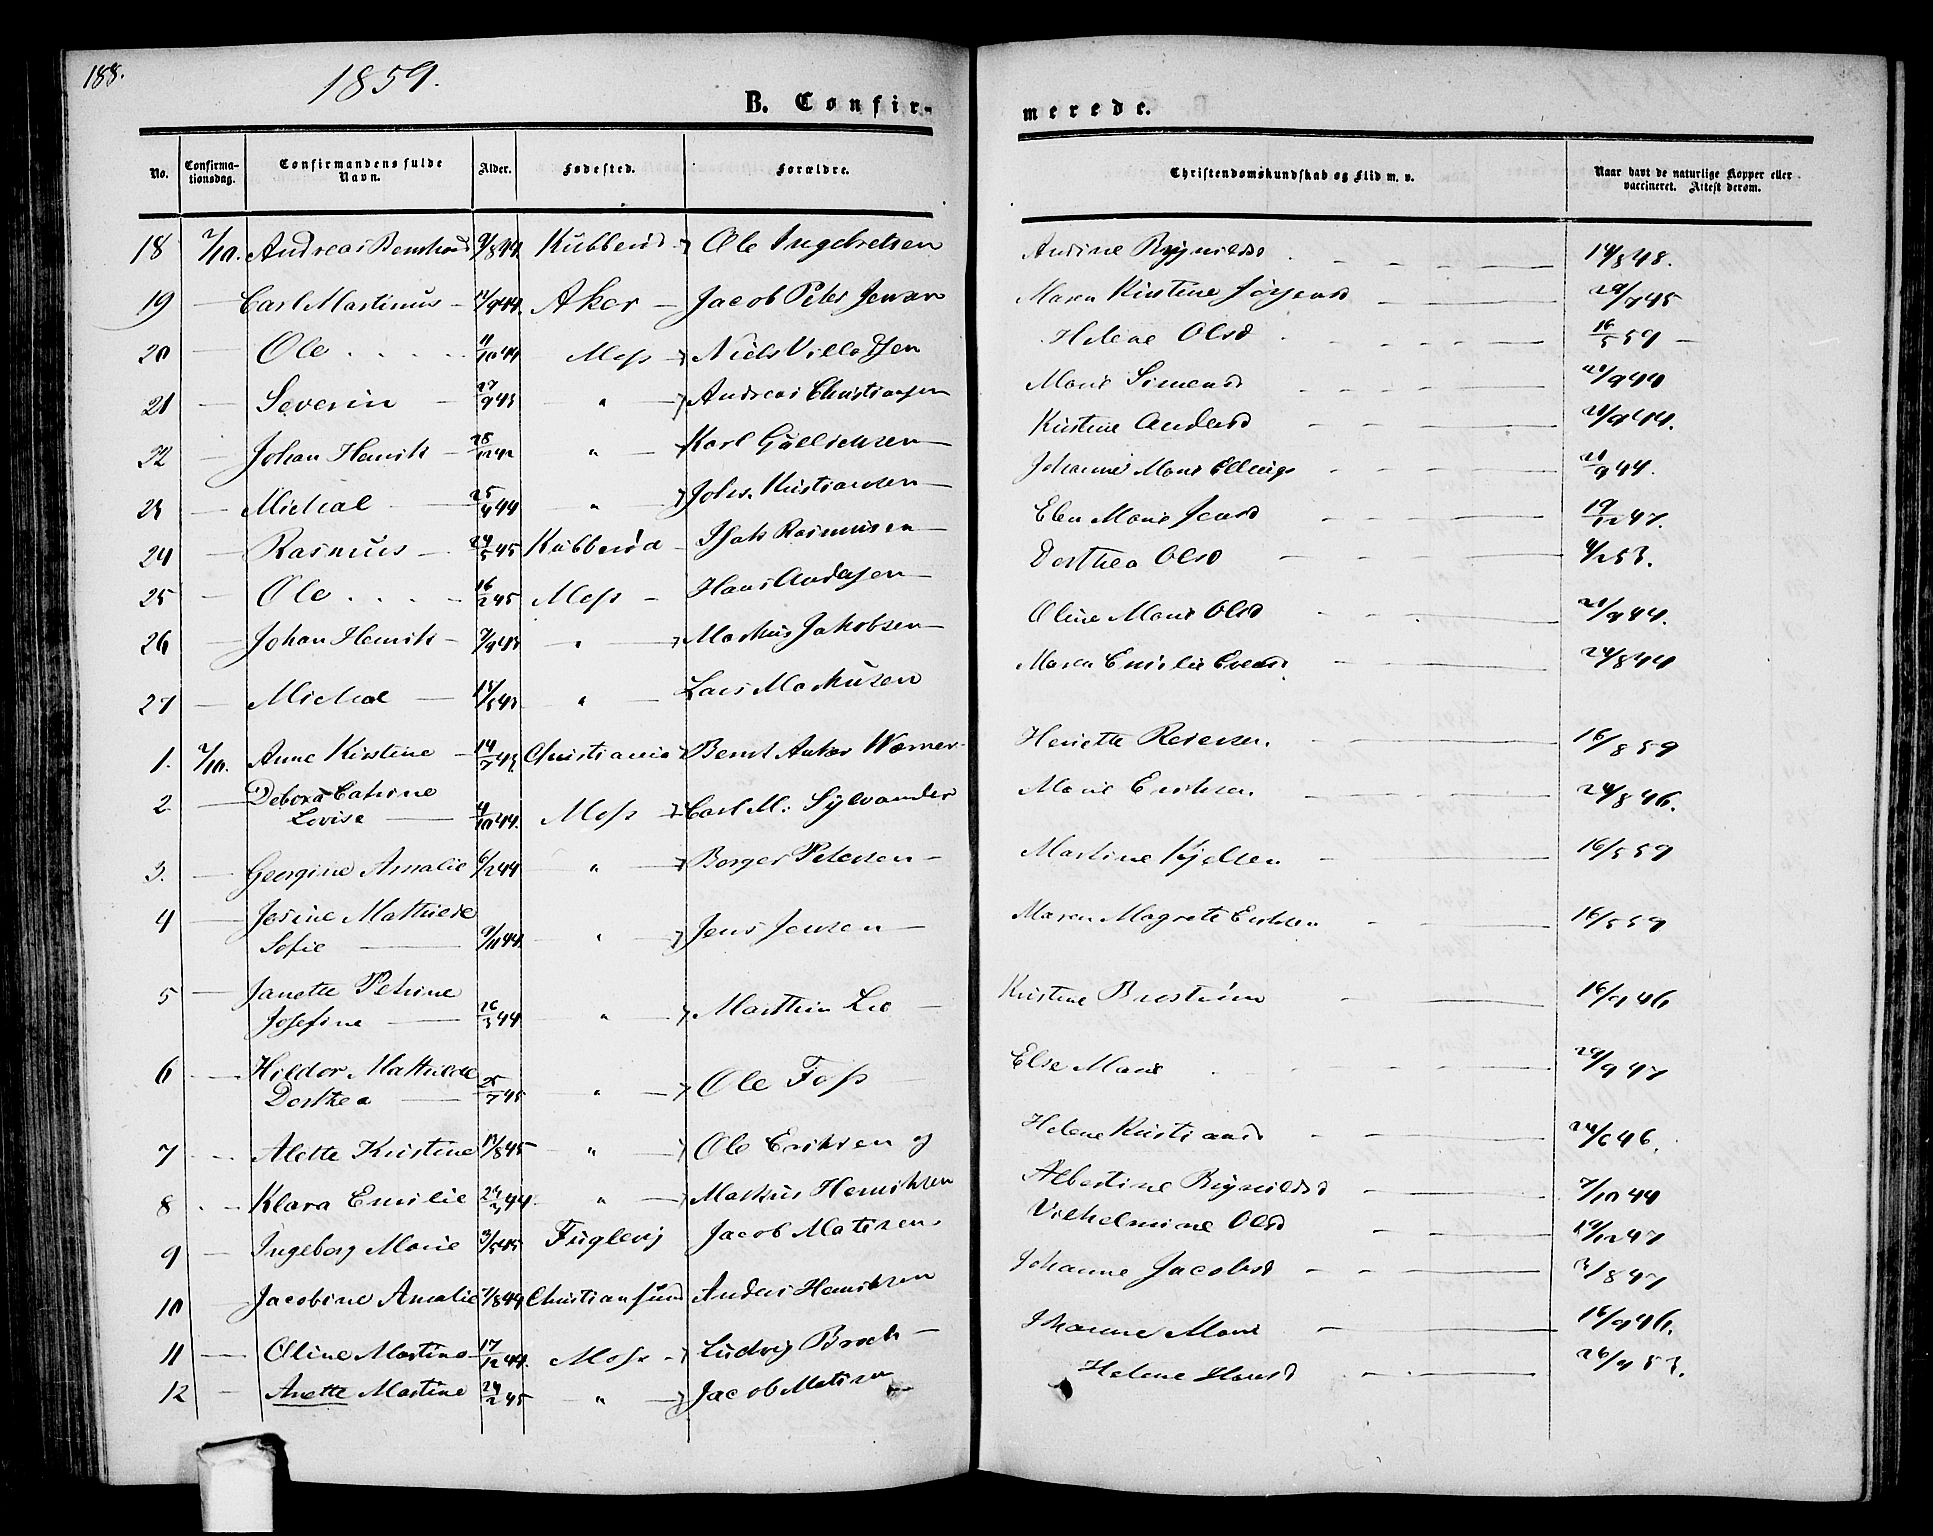 188.
1859.
B. Confir-
merede.
No.
Confirma-
tionsdag.
Confirmandens fulde
Navn.
Alder.
Fødested.
Forældre.
Christendomskundskab og Flid m. v.
Naar havt de naturlige Kopper eller
vaccineret. Attest derom.
18 2/10. Andreas Bernhard 9/8 44 Kubberød Ole Ingebretsen Andine Rognildsd 14/8 48.
19 — Carl Martinus 17/9 44. Aker — Jacob Peter Jensen Maren Kirstine Jørgensd 29/7 45
20 — Ole 11/10 44 Moss Niels Villadsen Helene Olsd 16/5 59
21 — Severin 27/9 43 " Andreas Christiansen Marie Simensd 21/9 44
22 — Johan Henrik 28/12 42 " Karl Gullichsen Kirstine Andersd 21/9 44.
23 — Micheal 25/4 44 " Johs. Kristiansen Johanne Marie Ellings 21/9 44.
24 — Rasmus 24/5 45 Kubberød Isak Rasmusen Elen Marie Jensd 19/12 47.
25 — Ole 16/2 45 Moss Hans Andersen Dorthea Olsd 4/2 53.
26 — Johan Henrik 7/9 43 " Markus Jakobsen Oline Marie Olsd 21/9 44.
27 — Micheal 15/5 43 " Lars Markusen Maren Emilie Evensd 24/8 44
1. 2/10. Anne Kirstine 14/7 45 Christiania Bernt Anker Werner Henriette Reiersen. 16/8 59
2. — Debora Catrine
Lovise 4/10 44. Moss Carl M: Sylvander Marie Eriksen 24/8 46.
3. — Georgine Amalie 6/2 44 " Borger Petersen Martine Kjelsen 16/5 59
4 — Jesine Mathilde
Sofie 9/11 44. " Jens Jensen Maren Magrete Eriksen 16/5 59
5 — Janette Petrine
Josefine 26/3 44 " Marthin Lie Kristine Brostrøm 16/9 46
6 — Hildor Mathilde
Dorthea 25/7 45 " Ole Foss Else Marie 29/9 47
7 — Alette Kristine 17/8 45 " Ole Eriksen og Helene Kristiansd 24/6 46.
8 — Klara Emilie 24/3 44. " Markus Henriksen Albertine Rognildsd 7/10 44
9 — Ingeborg Marie 3/5 45 Fuglevig Jacob Matisen Vilhelmine Olsd 19/12 47
10 — Jacobine Amalie 7/8 44 Christiansund Anders Henriksen Johanne Jacobsd 3/8 47
11 — Oline Martine 17/12 44. Moss Ludvig Broch Johanne Marie 16/9 46.
12 — Anette Martine 24/2 45 " Jacob Matisen Helene Hansd 26/4 53.